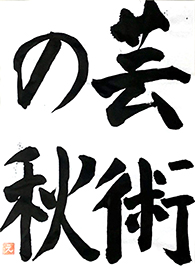 芸術
の秋